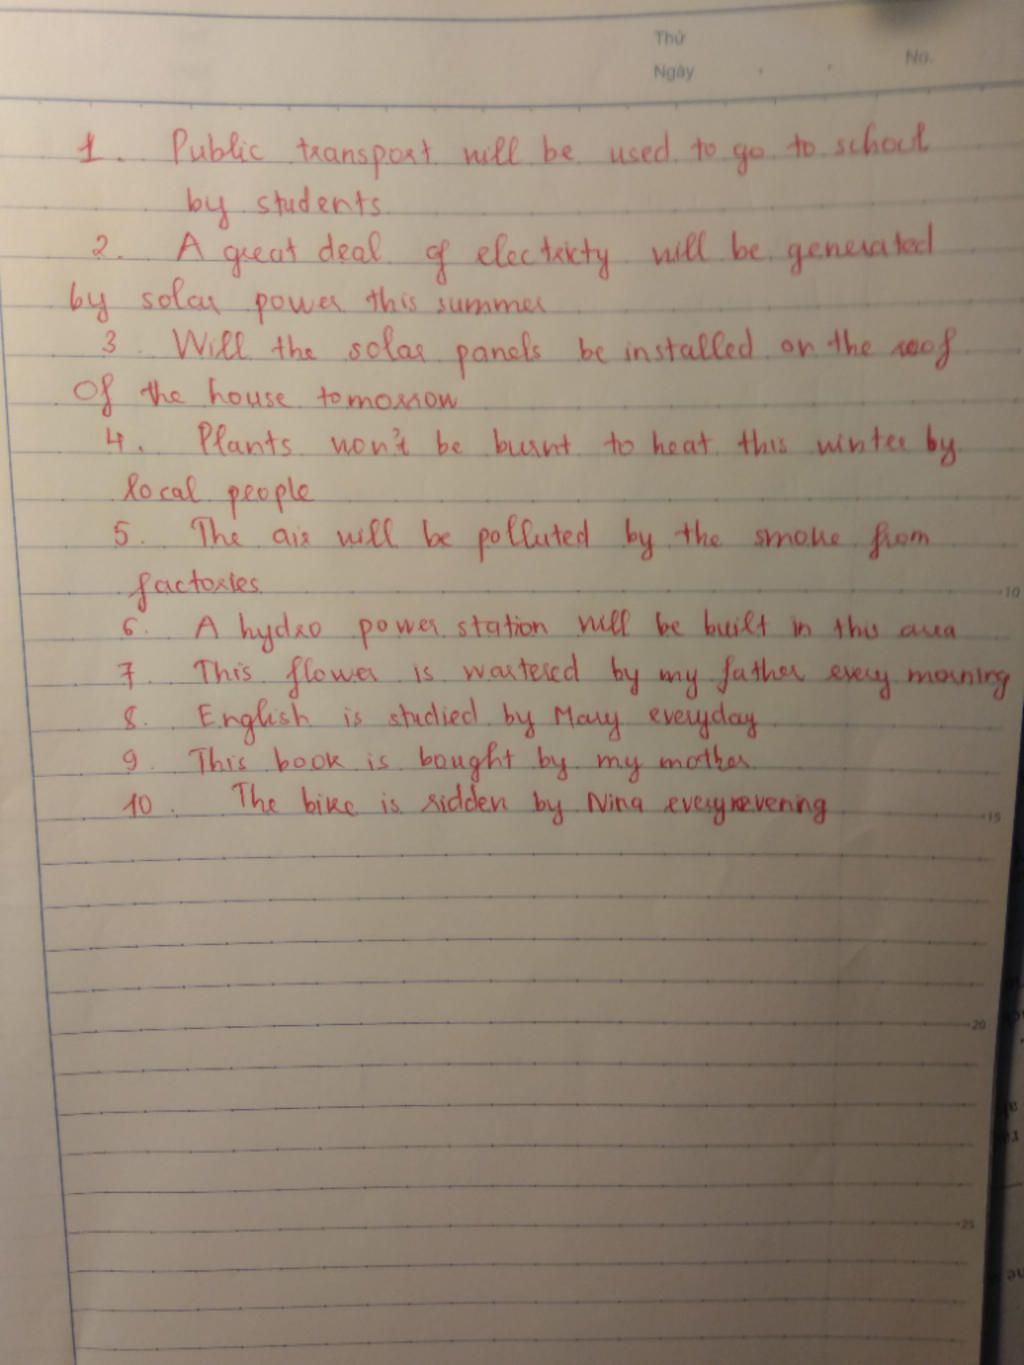 Thứ
Ngày
No.
1. Public transport will be used to go to school
by students
2. A great deal of electricty will be generated
by solar power this summer
3. Will the solar panels be installed on the roof
Of the house tomorrow
4. Plants won't be burnt to heat this winter by
local people
5. The air will be polluted by the smoke from
factories
6. A hydro power station will be built in this area
7. This flower is wartered by my father every morning
8. English is studied by Mary everyday
9. This book is bought by my mother
10. The bike is ridden by Nina every evening
10
15
20
25